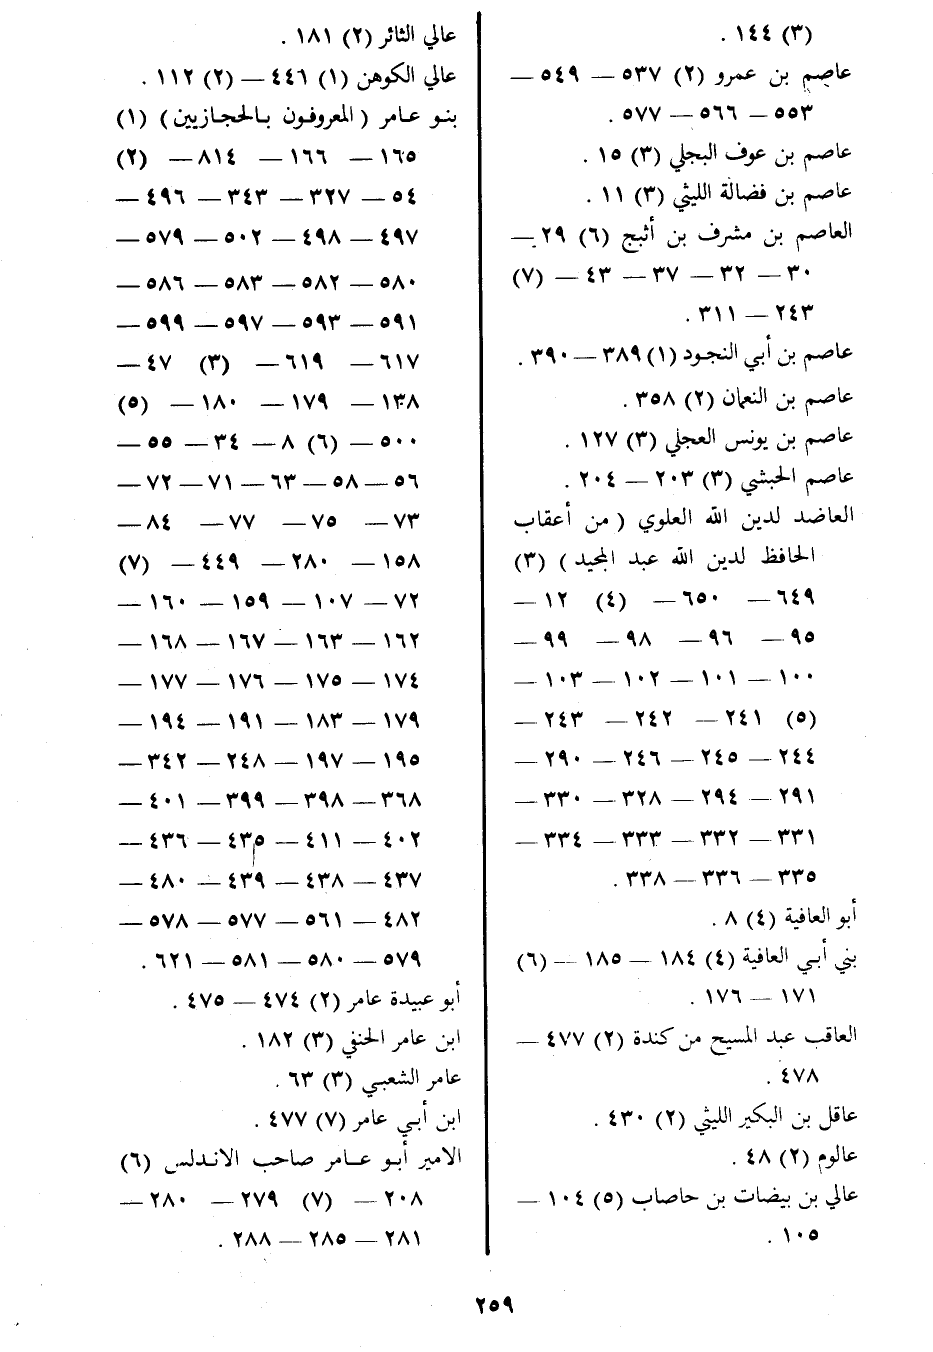 (٣) ١٤٤ .
عاصم بن عمرو (٢) ٥٣٧ — ٥٤٩ —
٥٥٣ — ٥٦٦ — ٥٧٧ .
عاصم بن عوف البجلي (٣) ١٥ .
عاصم بن فضالة الليثي (٣) ١١ .
العاصم بن مشرف بن أثبج (٦) ٢٩ —
٣٠ — ٣٢ — ٣٧ — ٤٣ — (٧)
٢٤٣ — ٣١١ .
عاصم بن أبي النجود (١) ٣٨٩ — ٣٩٠ .
عاصم بن النعمان (٢) ٣٥٨ .
عاصم بن يونس العجلي (٣) ١٢٧ .
عاصم الحبشي (٣) ٢٠٣ — ٢٠٤ .
العاضد لدين الله العلوي ( من أعقاب
الحافظ لدين الله عبد المجيد ) (٣)
٦٤٩ — ٦٥٠ — (٤) ١٢ —
٩٥ — ٩٦ — ٩٨ — ٩٩ —
١٠٠ — ١٠١ — ١٠٢ — ١٠٣ —
(٥) ٢٤١ — ٢٤٢ — ٢٤٣ —
٢٤٤ — ٢٤٥ — ٢٤٦ — ٢٩٠ —
٢٩١ — ٢٩٤ — ٣٢٨ — ٣٣٠ —
٣٣١ — ٣٣٢ — ٣٣٣ — ٣٣٤ —
٣٣٥ — ٣٣٦ — ٣٣٨ .
أبو العافية (٤) ٨ .
بني أبي العافية (٤) ١٨٤ — ١٨٥ — (٦)
١٧١ — ١٧٦ .
العاقب عبد المسيح من كندة (٢) ٤٧٧ —
٤٧٨ .
عاقل بن البكير الليثي (٢) ٤٣٠ .
عالوم (٢) ٤٨ .
عالي بن بيضات بن حاصاب (٥) ١٠٤ —
١٠٥ .
عالي الثائر (٢) ١٨١ .
عالي الكوهن (١) ٤٤٦ — (٢) ١١٢ .
بنو عامر ( المعروفون بالحجازيين ) (١)
١٦٥ — ١٦٦ — ٨١٤ — (٢)
٥٤ — ٣٢٧ — ٣٤٣ — ٤٩٦ —
٤٩٧ — ٤٩٨ — ٥٠٢ — ٥٧٩ —
٥٨٠ — ٥٨٢ — ٥٨٣ — ٥٨٦ —
٥٩١ — ٥٩٣ — ٥٩٧ — ٥٩٩ —
٦١٧ — ٦١٩ — (٣) ٤٧ —
١٣٨ — ١٧٩ — ١٨٠ — (٥)
٥٠٠ — (٦) ٨ — ٣٤ — ٥٥ —
٥٦ — ٥٨ — ٦٣ — ٧١ — ٧٢ —
٧٣ — ٧٥ — ٧٧ — ٨٤ —
١٥٨ — ٢٨٠ — ٤٤٩ — (٧)
٧٢ — ١٠٧ — ١٥٩ — ١٦٠ —
١٦٢ — ١٦٣ — ١٦٧ — ١٦٨ —
١٧٤ — ١٧٥ — ١٧٦ — ١٧٧ —
١٧٩ — ١٨٣ — ١٩١ — ١٩٤ —
١٩٥ — ١٩٧ — ٢٤٨ — ٣٤٢ —
٣٦٨ — ٣٩٨ — ٣٩٩ — ٤٠١ —
٤٠٢ — ٤١١ — ٤٣٥ — ٤٣٦ —
٤٣٧ — ٤٣٨ — ٤٣٩ — ٤٨٠ —
٤٨٢ — ٥٦١ — ٥٧٧ — ٥٧٨ —
٥٧٩ — ٥٨٠ — ٥٨١ — ٦٢١ .
أبو عبيدة عامر (٢) ٤٧٤ — ٤٧٥ .
ابن عامر الحنفي (٣) ١٨٢ .
عامر الشعبي (٣) ٦٣ .
ابن أبي عامر (٧) ٤٧٧ .
الامير أبو عامر صاحب الاندلس (٦)
٢٠٨ — (٧) ٢٧٩ — ٢٨٠ —
٢٨١ — ٢٨٥ — ٢٨٨ .
٢٥٩